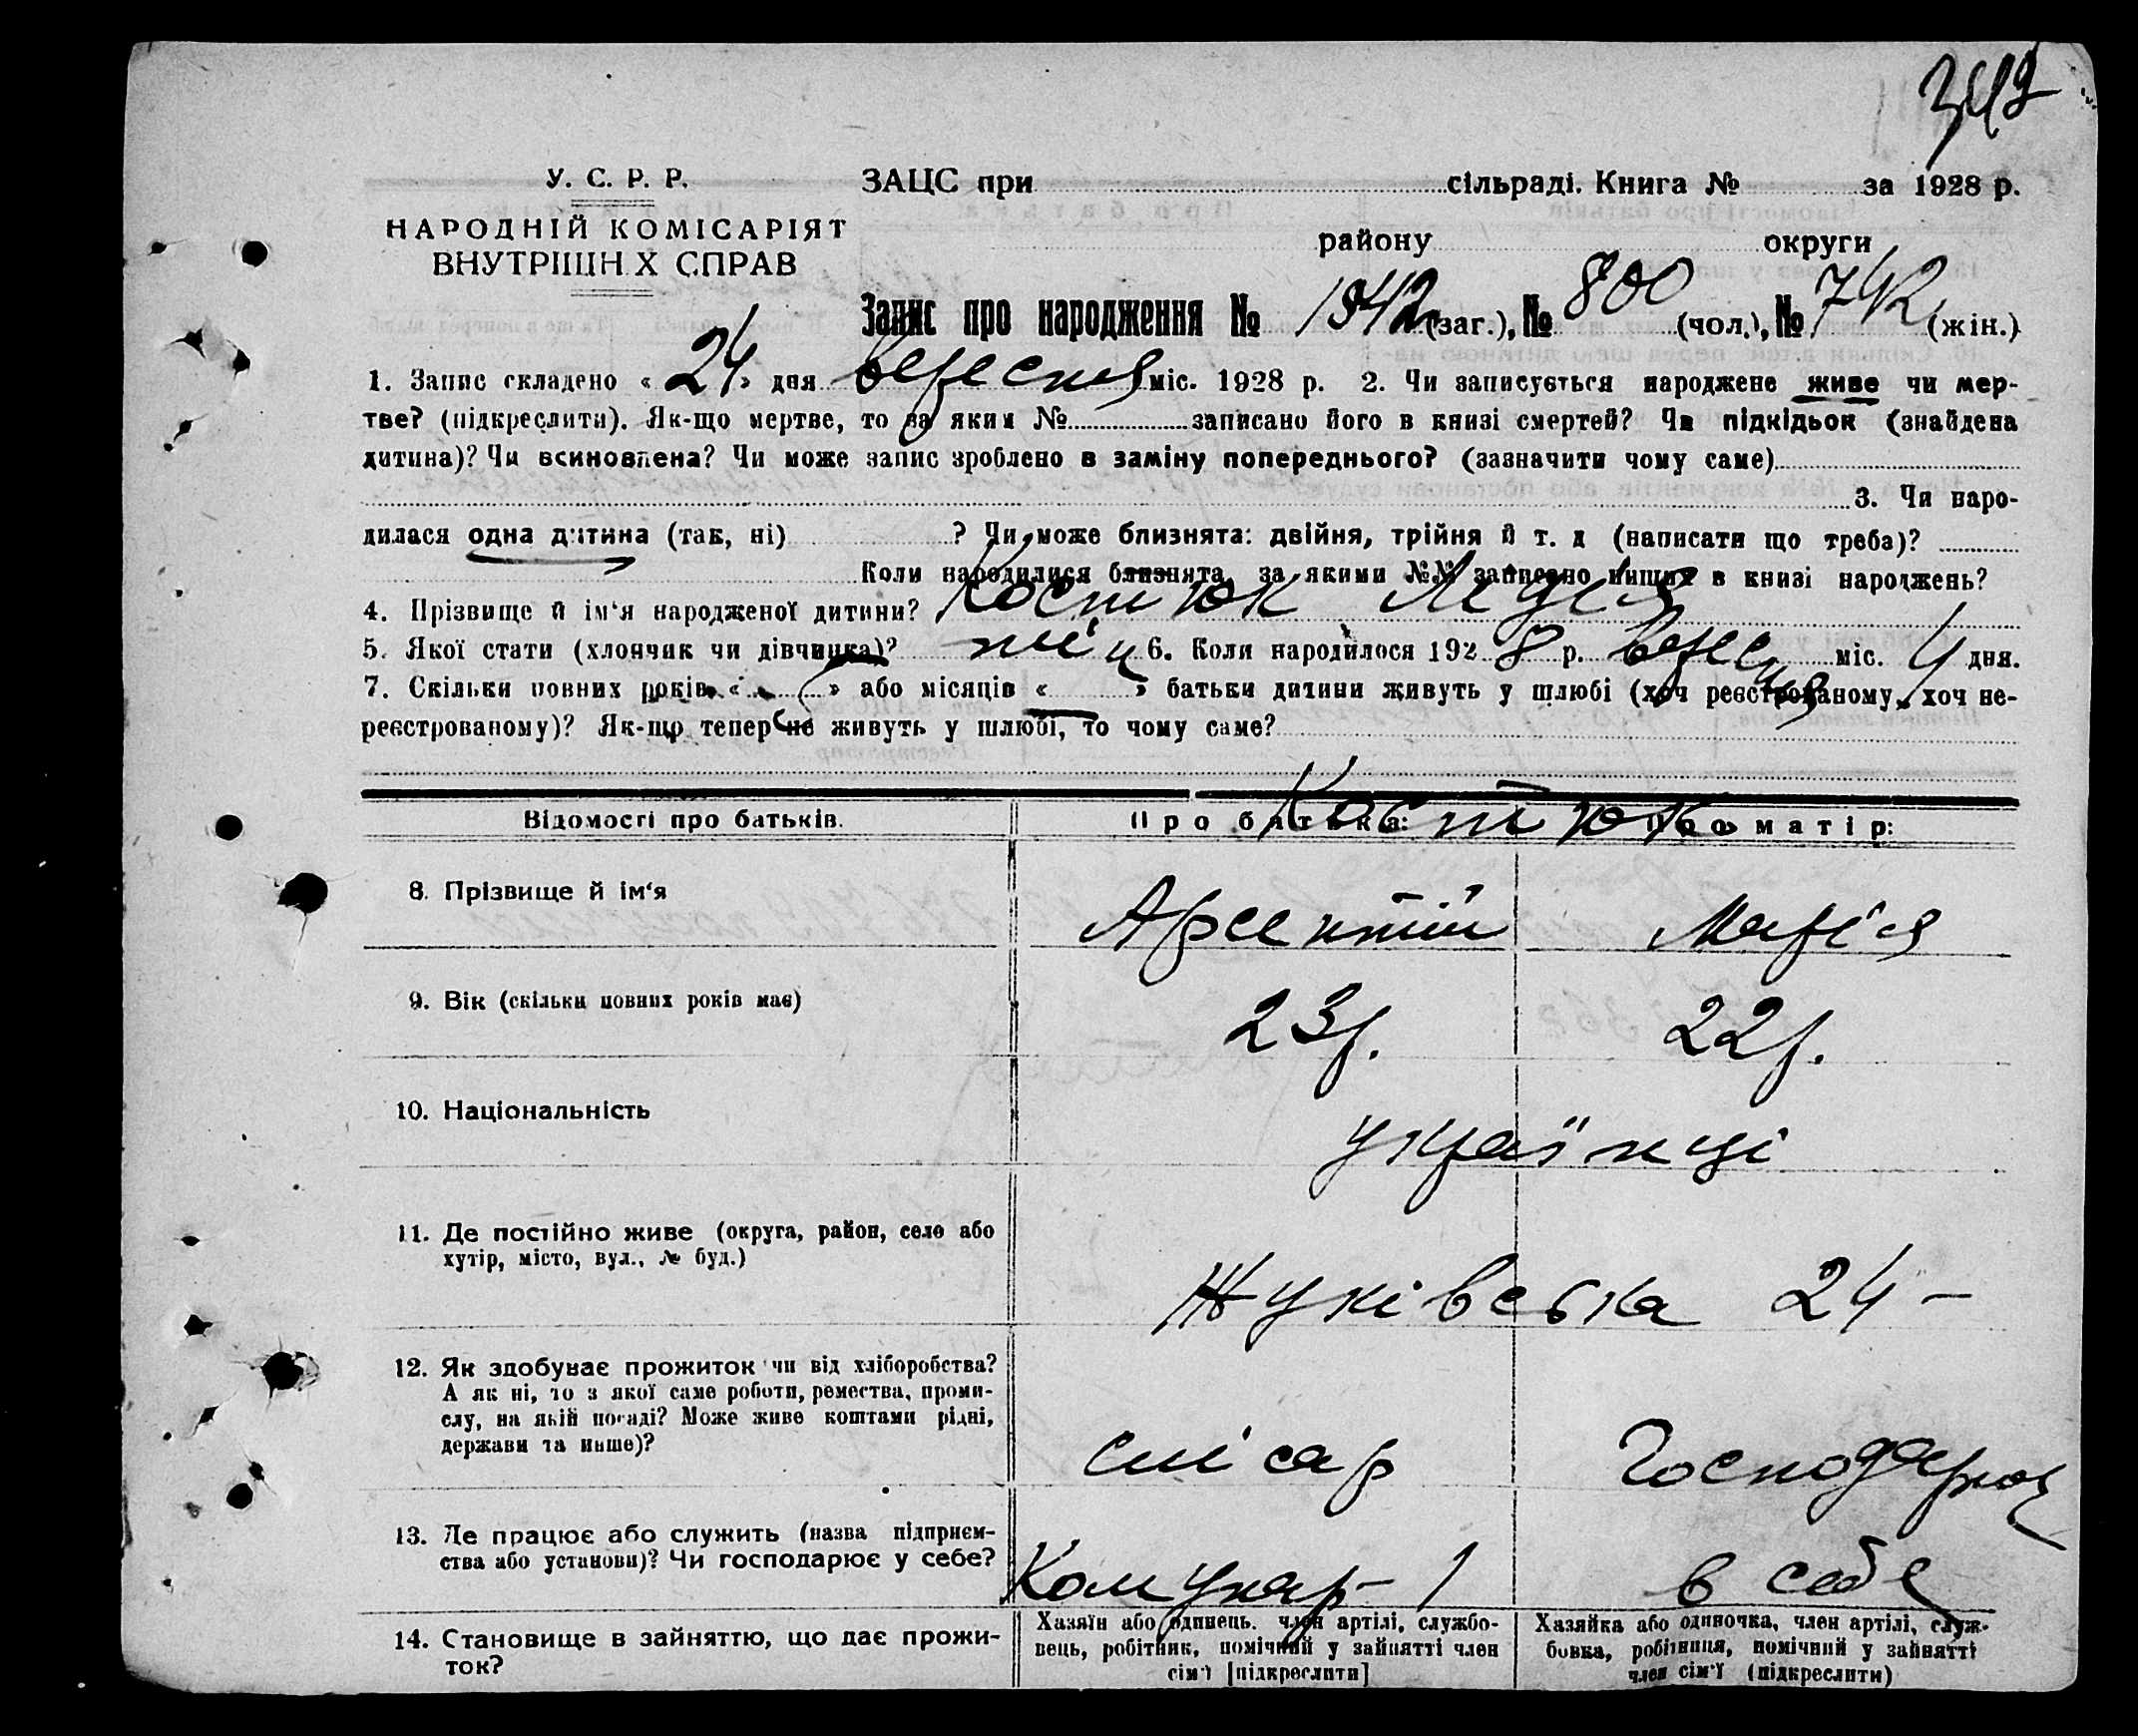 342
У. С. Р. Р.
НАРОДНІЙ КОМІСАРІЯТ
ВНУТРІШН Х СПРАВ
ЗАЦС при сільраді. Книга № за 1928 р.
району округи
Запис про народження № 1542 (заг.), № 800 (чол.), № 742 (жін.)
1. Запис складено « 24 » дня вересня міс. 1928 р. 2. Чи записується народжене живе чи мер-
тве? (підкреслити). Як-що мертве, то за яким № записано його в книзі смертей? Чи підкідьок (знайдена
дитина)? Чи всиновлена? Чи може запис зроблено в заміну попереднього? (зазначити чому саме)
3. Чи наро-
дилася одна дитина (так, ні) ? Чи може близнята: двійня, трійня й т. д (написати що треба)?
Коли народилися близнята, за якими №№ записано инших в книзі народжень?
4. Прізвище й ім‘я народженої дитини? Костюк Лідія
5. Якої стати (хлопчик чи дівчинка)? жін 6. Коли народилося 1928 р. вересня міс. 4 дня.
7. Скільки повних років « » або місяців « » батьки дитини живуть у шлюбі (хоч реєстрованому, хоч не-
реєстрованому)? Як-що тепер не живуть у шлюбі, то чому саме?
Відомості про батьків. Про батька: Про матір:
Костюк
8. Прізвище й ім‘я Арсентій Марія
9. Вік (скільки повних років має) 23р. 22р.
10. Національність українці
11. Де постійно живе (округа, район, село або
хутір, місто, вул., № буд.)
Жуківська 24 –
12. Як здобуває прожиток чи від хліборобства?
А як ні, то з якої саме роботи, ремества, проми-
слу, на якій посаді? Може живе коштами рідні,
держави та инше)?
слісар Господарює
13. Де працює або служить (назва підприєм-
ства або установи)? Чи господарює у себе?
Комунар – 1 в себе
14. Становище в зайняттю, що дає прожи-
ток?
Хазяїн або одинець, член артілі, службо-
вець, робітник, помічний у зайнятті член
сім‘ї [підкреслити]
Хазяйка або одиночка, член артілі, служ-
бовка, робітниця, помічний у зайнятті
член сім‘ї (підкреслити)